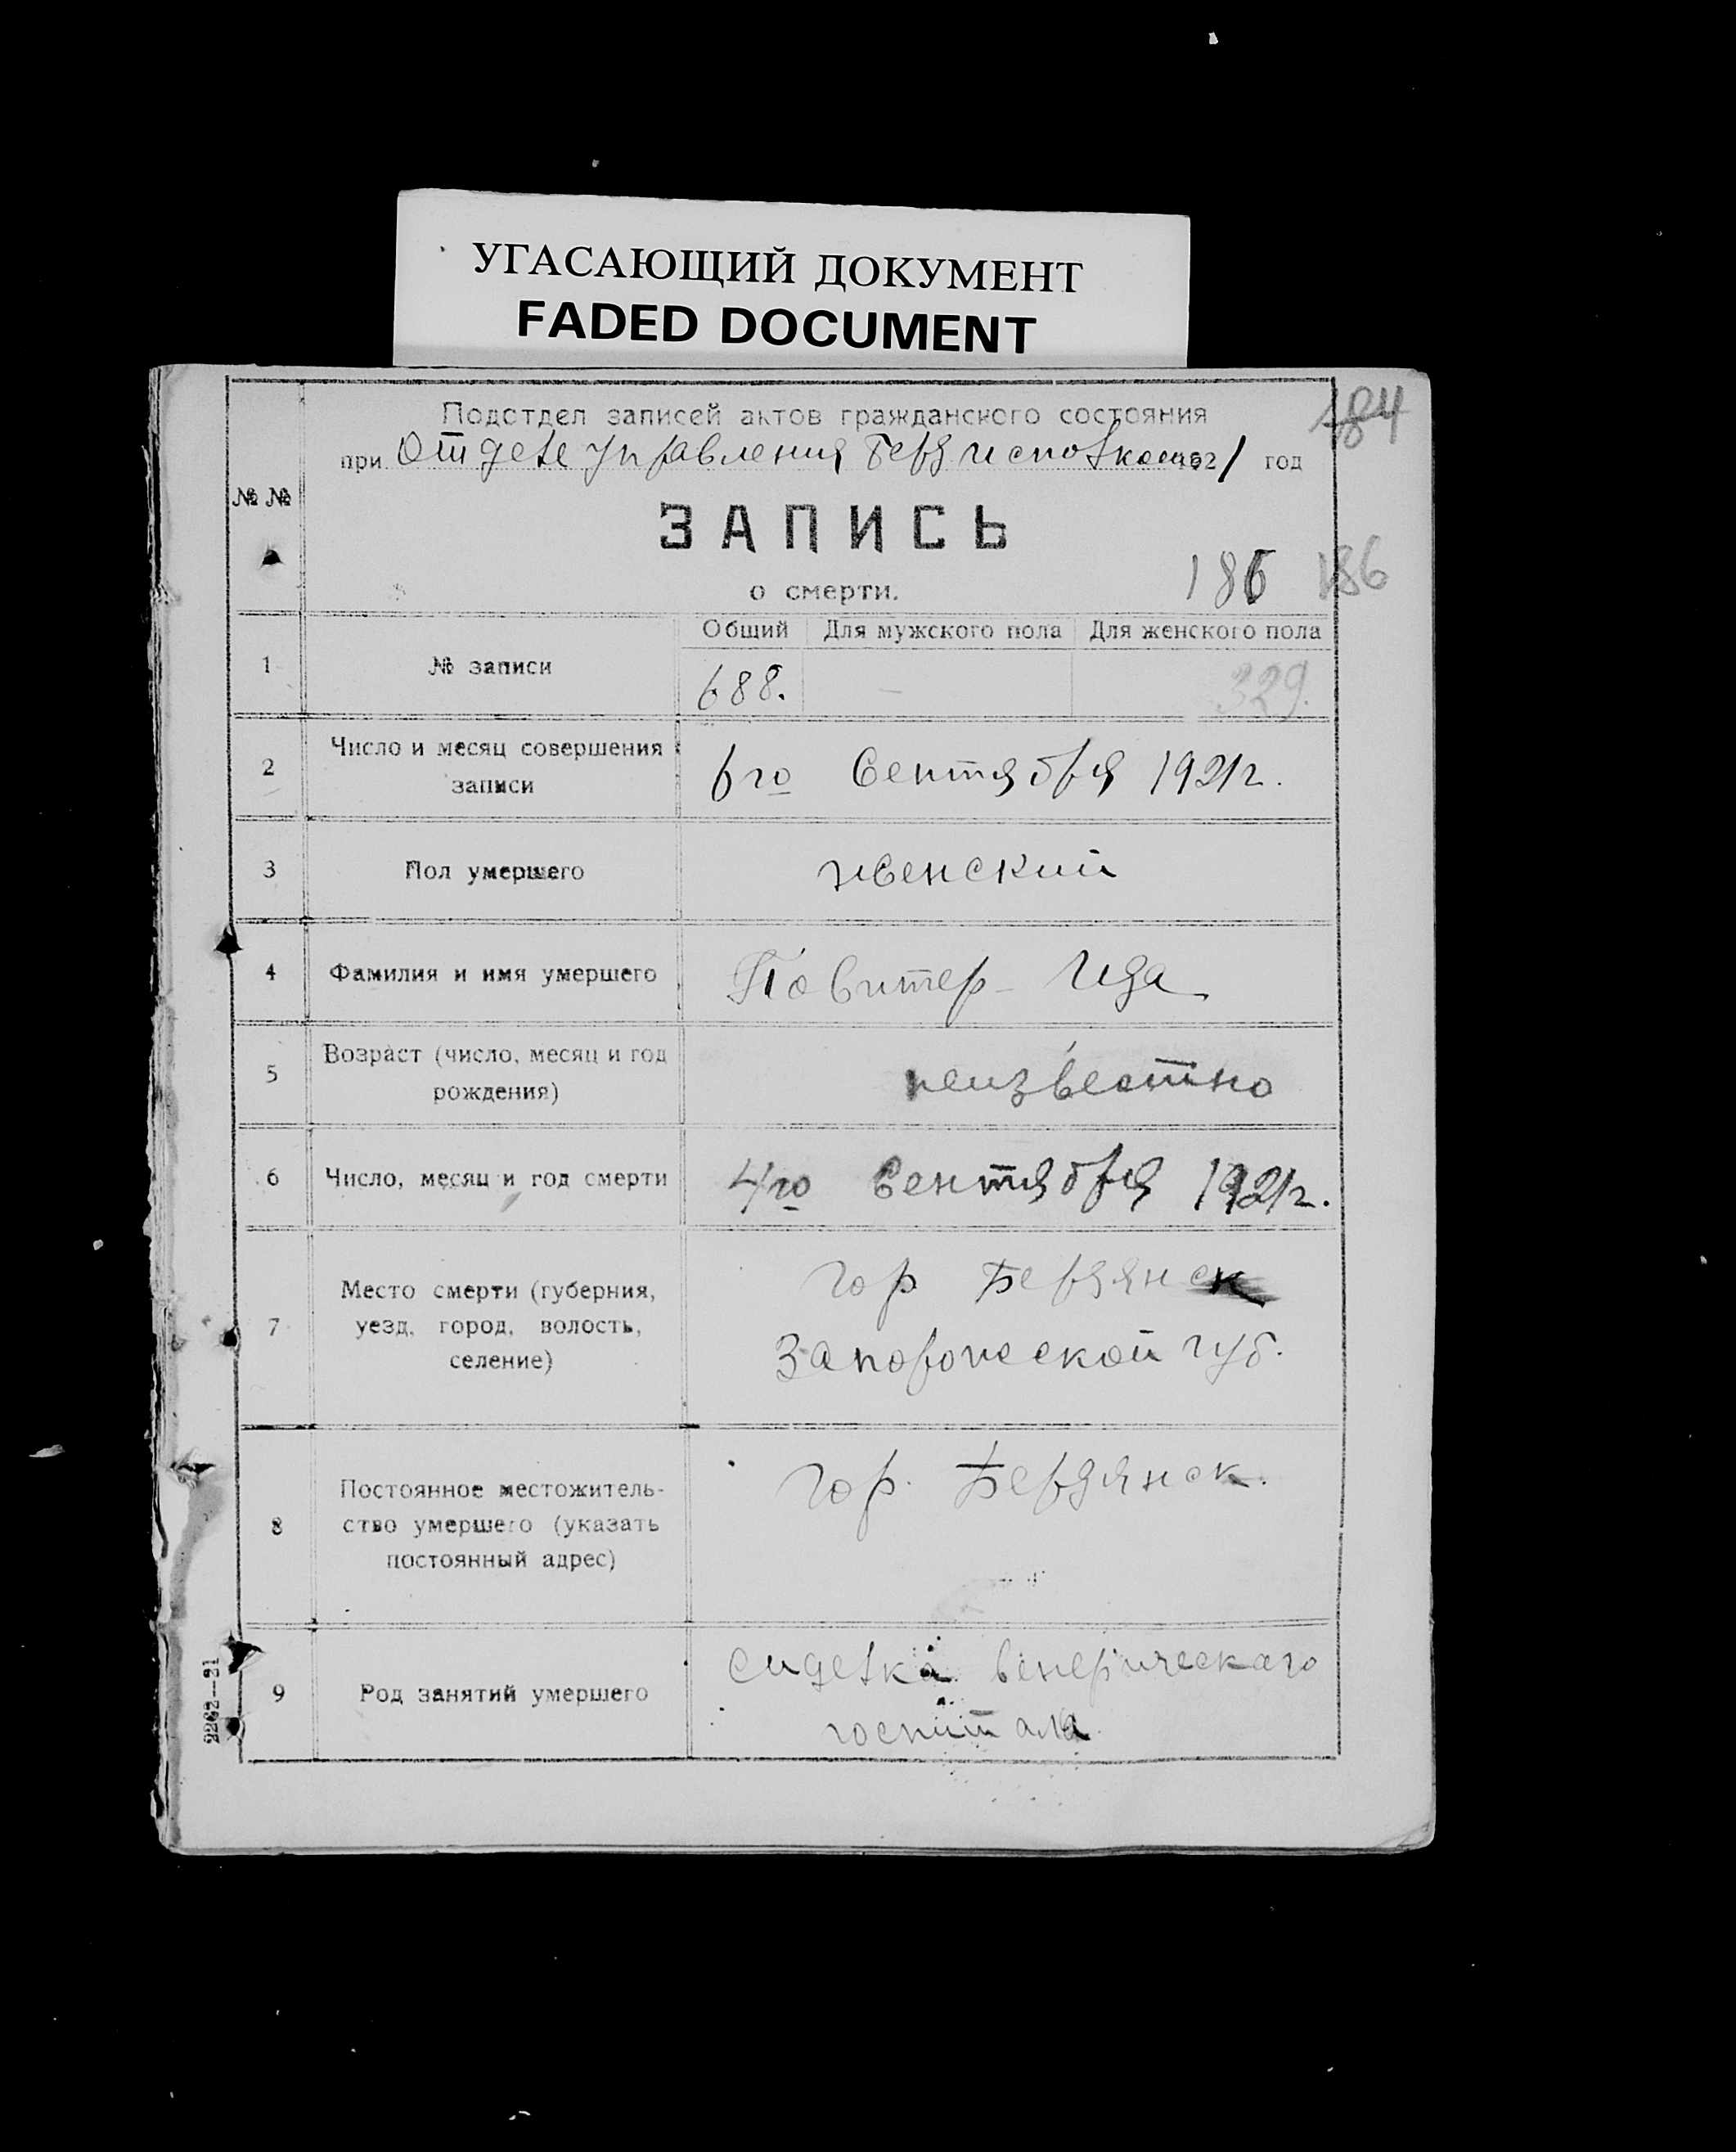 УГАСАЮЩИЙ ДОКУМЕНТ
FADED DOCUMENT
184
Подотдел записей актов гражданского состояния
при Отделе управления Бердисполкома 1921 год
№ №
ЗАПИСЬ
о смерти.
186 186
Общий Для мужского пола Для женского пола
1 № записи 688. — 329.
2 Число и месяц совершения
записи
6го Сентября 1921г.
3 Пол умершего женский
4 Фамилия и имя умершего Повитер Ида
5 Возраст (число, месяц и год
рождения)
неизвестно
6 Число, месяц и год смерти 4го Сентября 1921г.
7 Место смерти (губерния,
уезд, город, волость,
селение)
гор Бердянск
Запорожской губ.
8 Постоянное местожитель-
ство умершего (указать
постоянный адрес)
гор. Бердянск.
9 Род занятий умершего
сиделка венерического
госпиталя
2262—21